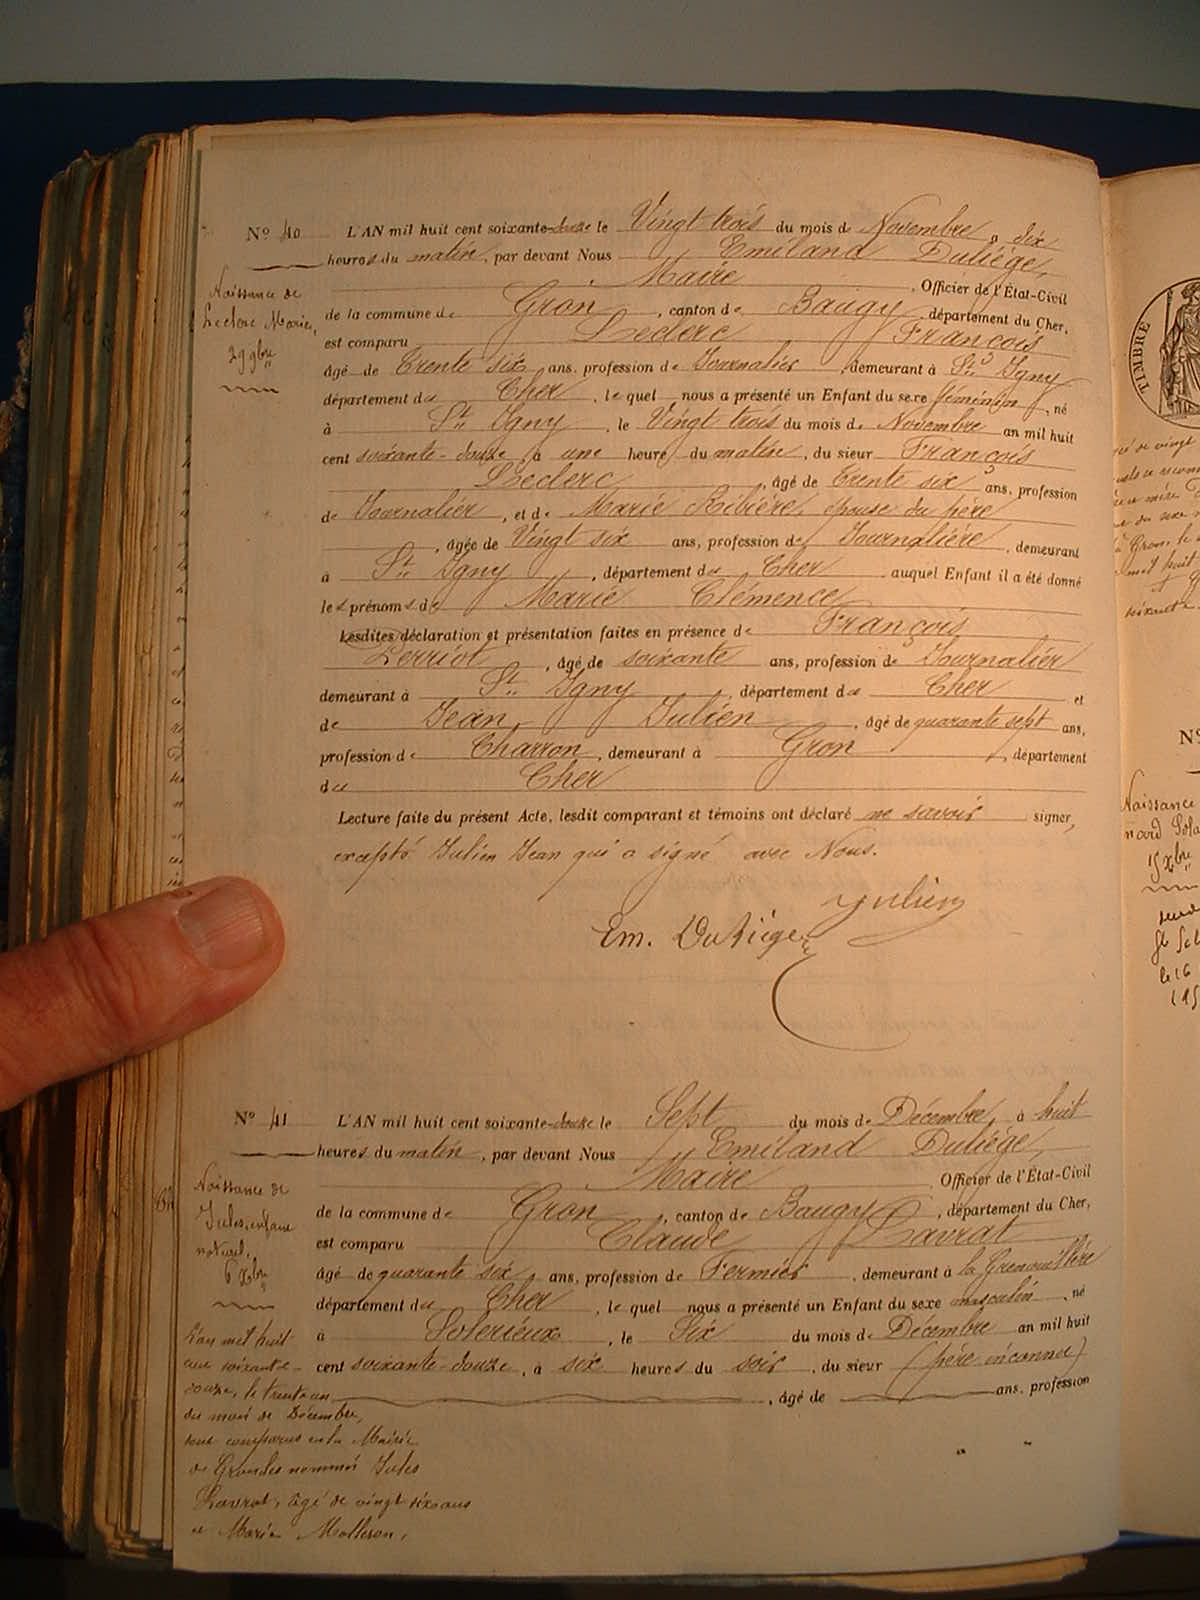 N° 40
Naissance de
Leclerc Marie,
23 9bre
L'AN mil huit cent soixante-douze le Vingt trois du mois de Novembre, à dix
heures du matin, par devant Nous Emiland Duliége,
Maire, Officier de l'État-Civil
de la commune de Gron, canton de Baugy, département du Cher,
est comparu Leclerc François
âgé de trente six ans, profession de Journalier, demeurant à St. Igny
département du Cher, lequel nous a présenté un Enfant du sexe féminin, né
à St. Igny, le Vingt trois du mois de Novembre an mil huit
cent soixante-douze, à une heure du matin, du sieur François
Leclerc, âgé de trente six ans, profession
de Journalier, et de Marie Ribière, épouse du père
, âgée de Vingt six ans, profession de Journalière, demeurant
à St. Igny, département du Cher auquel Enfant il a été donné
les prénoms de Marie Clémence
Lesdites déclaration et présentation faites en présence de François
Perriot, âgé de soixante ans, profession de Journalier
demeurant à St. Igny, département du Cher et
de Jean Julien, âgé de quarante sept ans,
profession de Charron, demeurant à Gron, département
du Cher
Lecture faite du présent Acte, lesdit comparant et témoins ont déclaré ne savoir signer,
excepté Julien Jean qui a signé avec Nous.
Julien
Em. Duliége
N° 41
Naissance de
Jules, enfant
naturel,
6 Xbre
L'an mil huit
cent soixante-
douze, le trente un
du mois de Décembre,
sont comparus en la Mairie
de Gron les nommés Jules
Lavrat, âgé de vingt six ans
et Marie Malleron,
L'AN mil huit cent soixante-douze le Sept du mois de Décembre, à huit
heures du matin, par devant Nous Emiland Duliége,
Maire, Officier de l'État-Civil
de la commune de Gron, canton de Baugy, département du Cher,
est comparu Claude Lavrat
âgé de quarante six ans, profession de Fermier, demeurant à la Grenouillère
département du Cher, lequel nous a présenté un Enfant du sexe masculin, né
à Solerieux, le Six du mois de Décembre an mil huit
cent soixante-douze, à six heures du soir, du sieur (père inconnu)
, âgé de ans, profession
TIMBRE
N°
Naissance